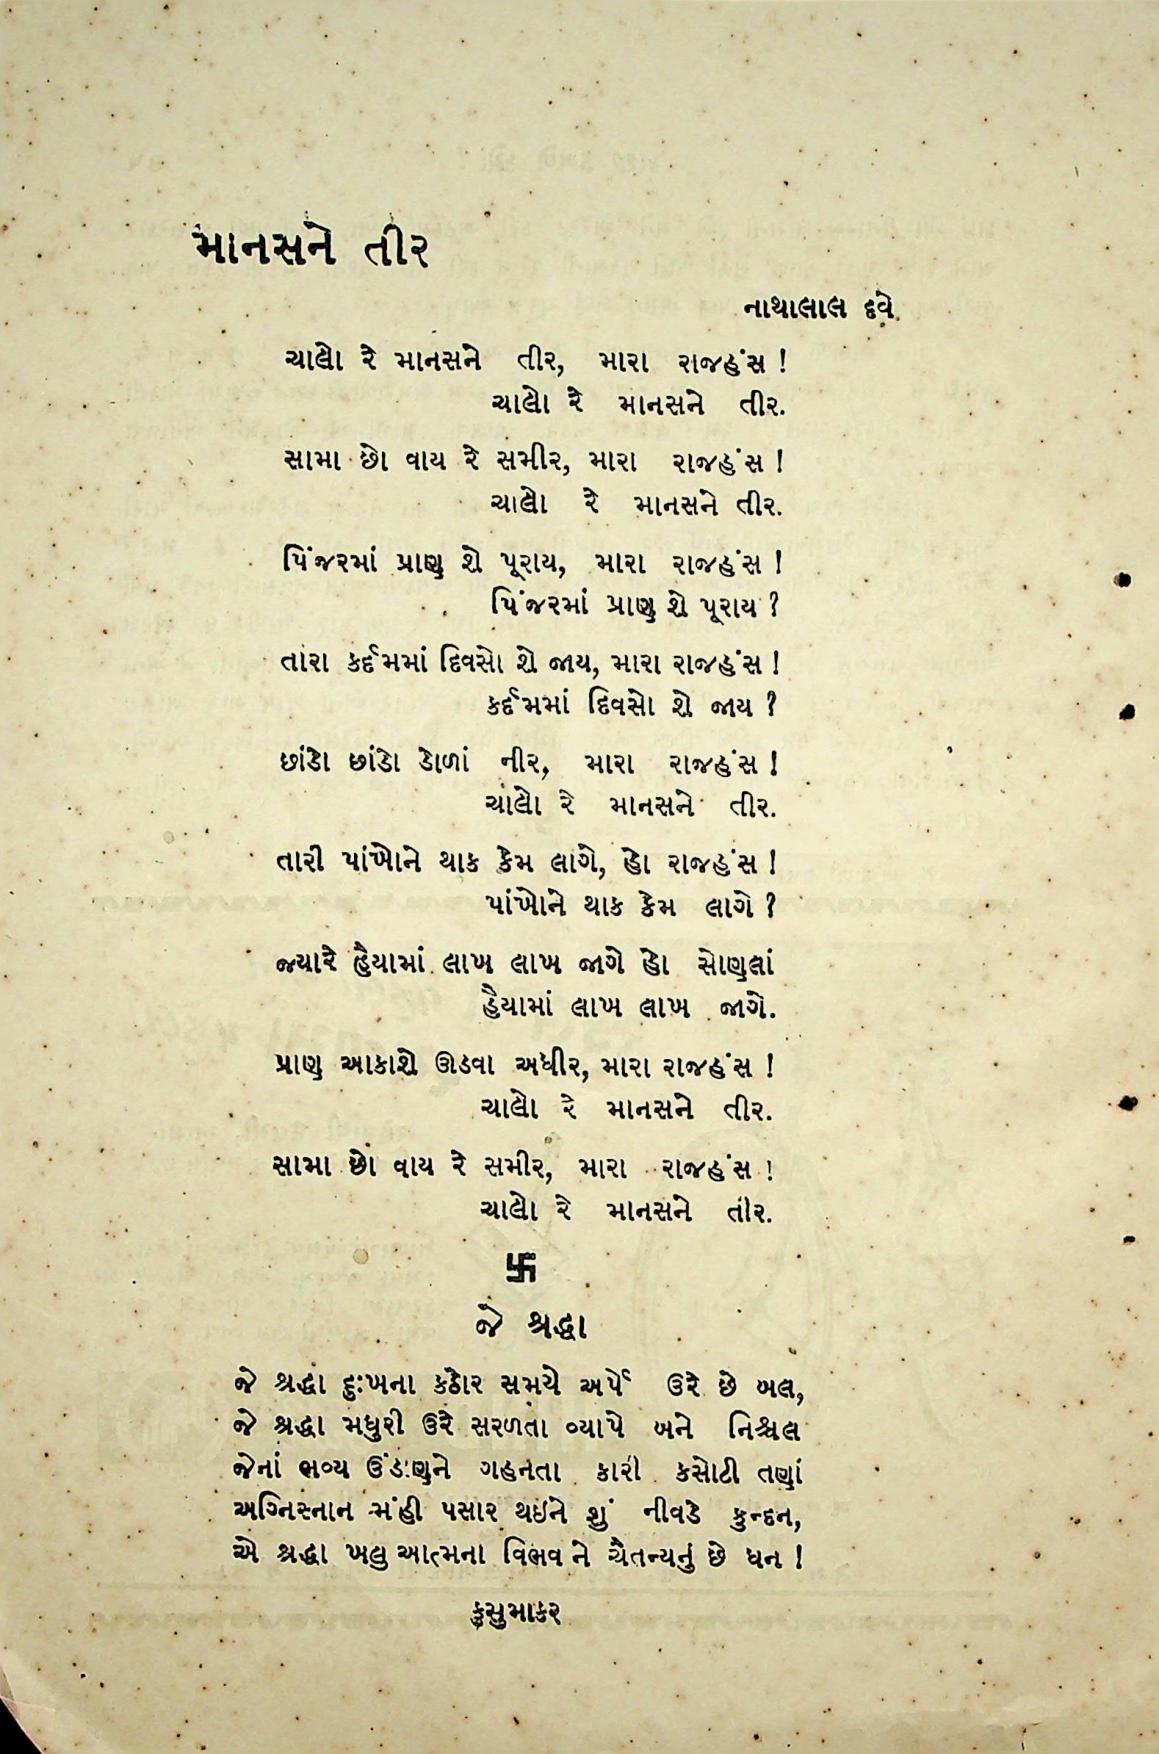 માનસને તીર
નાથાલાલ દવે
ચાલો રે માનસને તીર, મારા રાજહંસ !
ચાલો રે માનસને તીર.
સામા છો વાય રે સમીર, મારા રાજહંસ !
ચાલો રે માનસને તીર.
પિંજરમાં પ્રાણ શે પૂરાય, મારા રાજહંસ !
પિંજરમાં પ્રાણ શે પૂરાય ?
તારા કર્દમમાં દિવસો શે જાય, મારા રાજહંસ !
કર્દમમાં દિવસો શે જાય ?
છાંડો છાંડો ડોળાં નીર, મારા રાજહંસ !
ચાલો રે માનસને તીર.
તારી પાંખોને થાક કેમ લાગે, હો રાજહંસ !
પાંખોને થાક કેમ લાગે ?
જ્યારે હૈયામાં લાખ લાખ જાગે હો સોણલાં
હૈયામાં લાખ લાખ જાગે.
પ્રાણ આકાશે ઊડવા અધીર, મારા રાજહંસ !
ચાલો રે માનસને તીર.
સામા છો વાય રે સમીર, મારા રાજહંસ !
ચાલો રે માનસને તીર.
卐
જે શ્રદ્ધા
જે શ્રદ્ધા દુઃખના કઠોર સમયે અર્પે ઉરે છે બલ,
જે શ્રદ્ધા મધુરી ઉરે સરળતા વ્યાપે બને નિશ્ચલ
જેનાં ભવ્ય ઉંડાણને ગહનતા કારી કસોટી તણાં
અગ્નિસ્નાન મંહી પસાર થઇને શું નીવડે કુન્દન,
એ શ્રદ્ધા ખલુ આત્મના વિભવ ને ચૈતન્યનું છે ધન !
કુસુમાકર